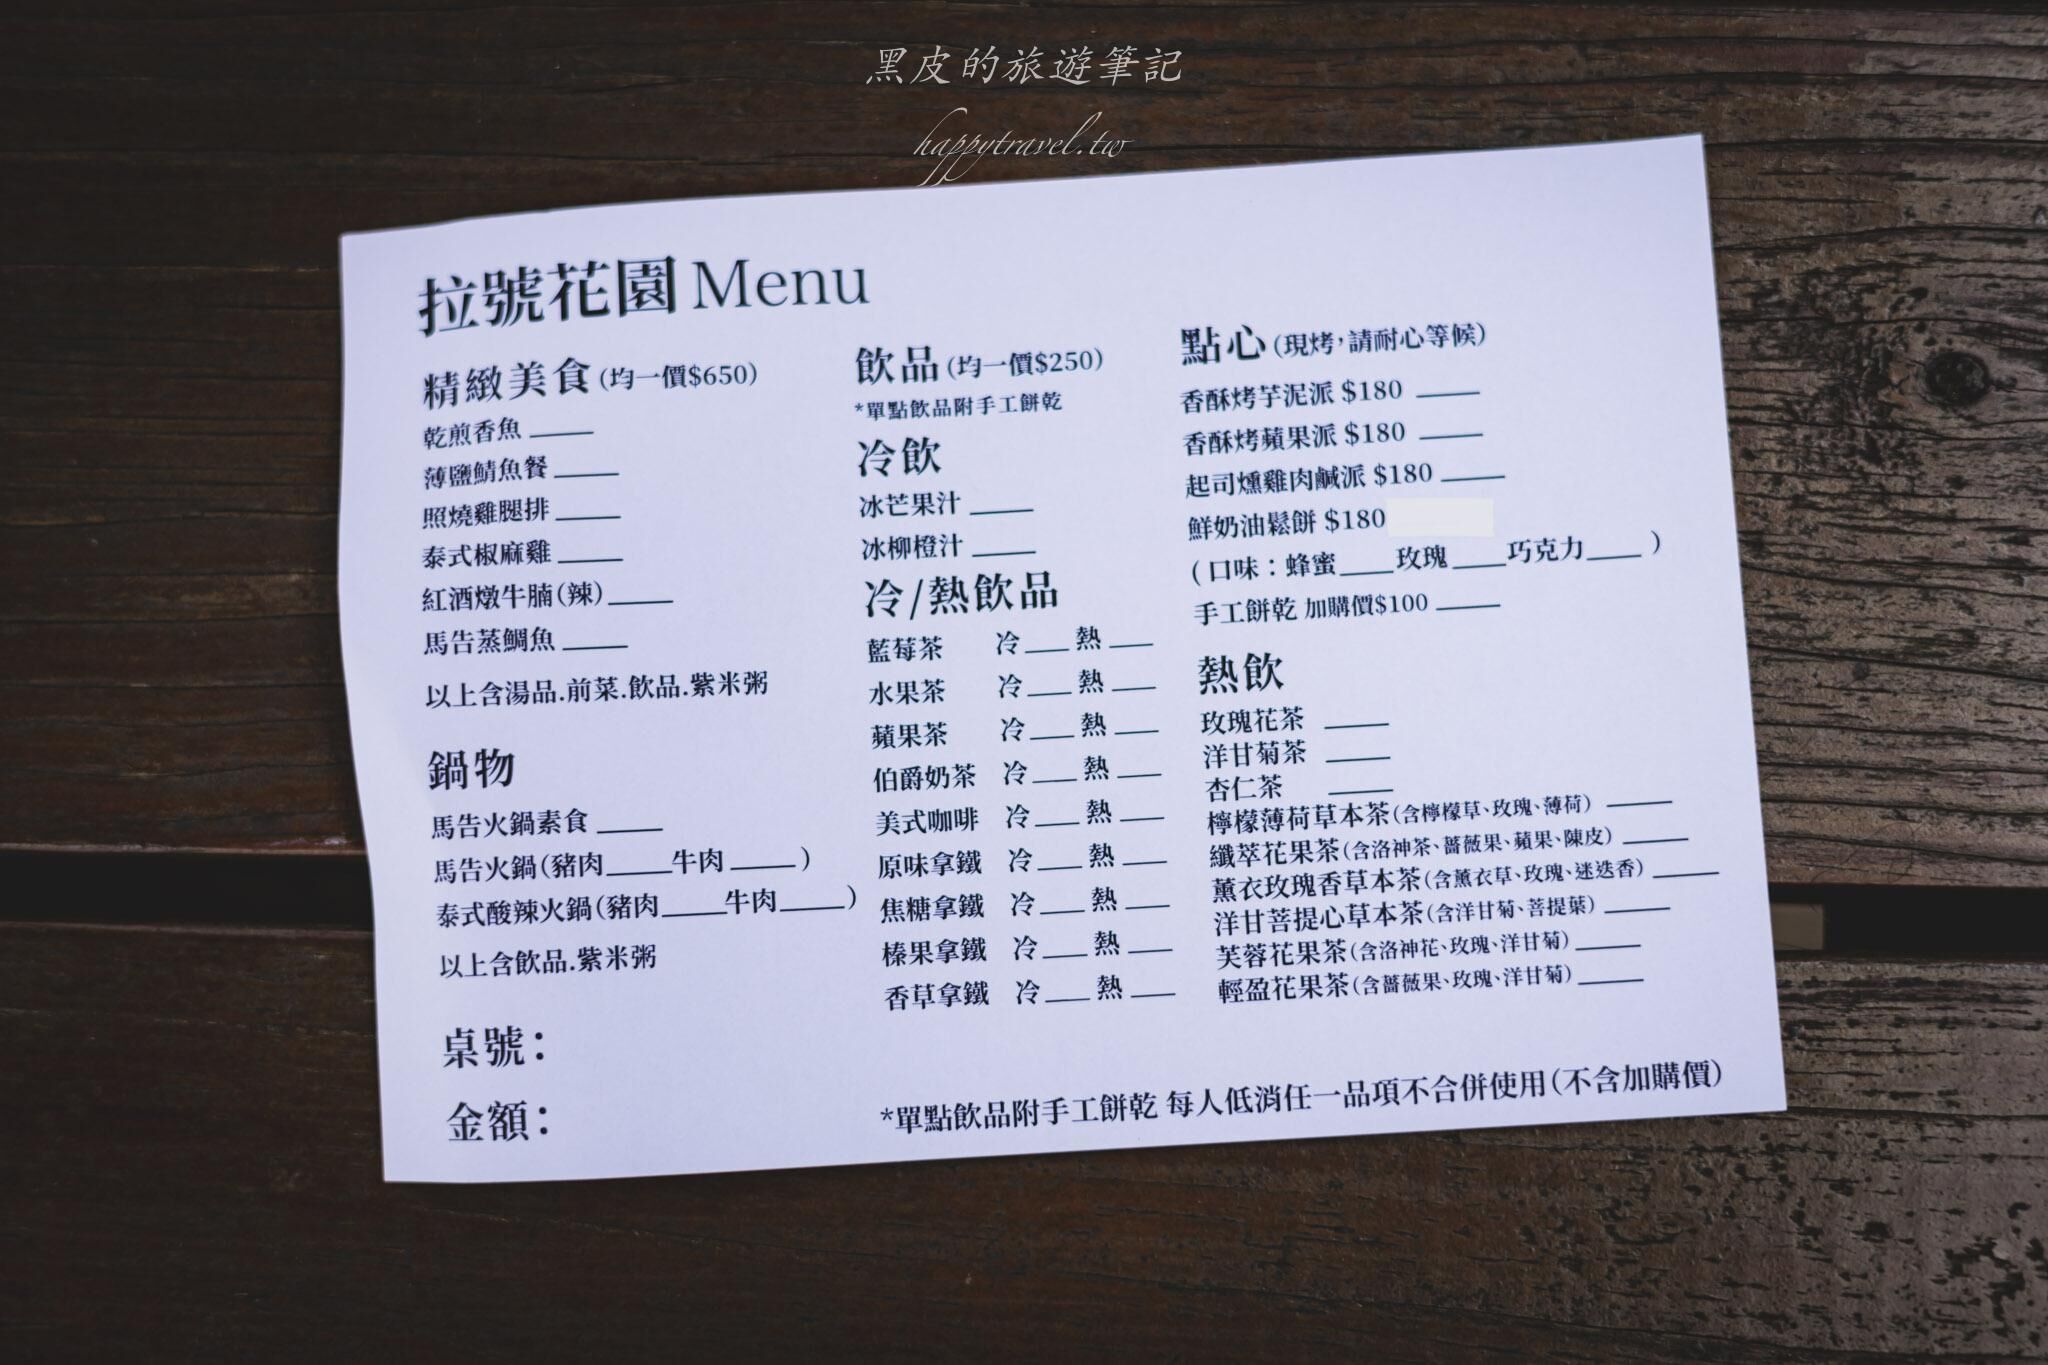 黑皮的旅遊筆記
happytravel.tw
拉號花園 Menu
精緻美食 (均一價$650)
乾煎香魚 ____
薄鹽鯖魚餐 ____
照燒雞腿排 ____
泰式椒麻雞 ____
紅酒燉牛腩(辣) ____
馬告蒸鯛魚 ____
以上含湯品.前菜.飲品.紫米粥
鍋物
馬告火鍋素食 ____
馬告火鍋(豬肉____牛肉____)
泰式酸辣火鍋(豬肉____牛肉____)
以上含飲品.紫米粥
桌號：
金額：
飲品 (均一價$250)
*單點飲品附手工餅乾
冷飲
冰芒果汁 ____
冰柳橙汁 ____
冷/熱飲品
藍莓茶 冷___熱___
水果茶 冷___熱___
蘋果茶 冷___熱___
伯爵奶茶 冷___熱___
美式咖啡 冷___熱___
原味拿鐵 冷___熱___
焦糖拿鐵 冷___熱___
榛果拿鐵 冷___熱___
香草拿鐵 冷___熱___
點心 (現烤，請耐心等候)
香酥烤芋泥派 $180 ____
香酥烤蘋果派 $180 ____
起司燻雞肉鹹派 $180 ____
鮮奶油鬆餅 $180
(口味：蜂蜜____玫瑰____巧克力____)
手工餅乾 加購價$100 ____
熱飲
玫瑰花茶 ____
洋甘菊茶 ____
杏仁茶 ____
檸檬薄荷草本茶(含檸檬草、玫瑰、薄荷) ____
纖萃花果茶(含洛神茶、薔薇果、蘋果、陳皮) ____
薰衣玫瑰香草本茶(含薰衣草、玫瑰、迷迭香) ____
洋甘菩提心草本茶(含洋甘菊、菩提葉) ____
芙蓉花果茶(含洛神花、玫瑰、洋甘菊) ____
輕盈花果茶(含薔薇果、玫瑰、洋甘菊) ____
*單點飲品附手工餅乾 每人低消任一品項不合併使用(不含加購價)